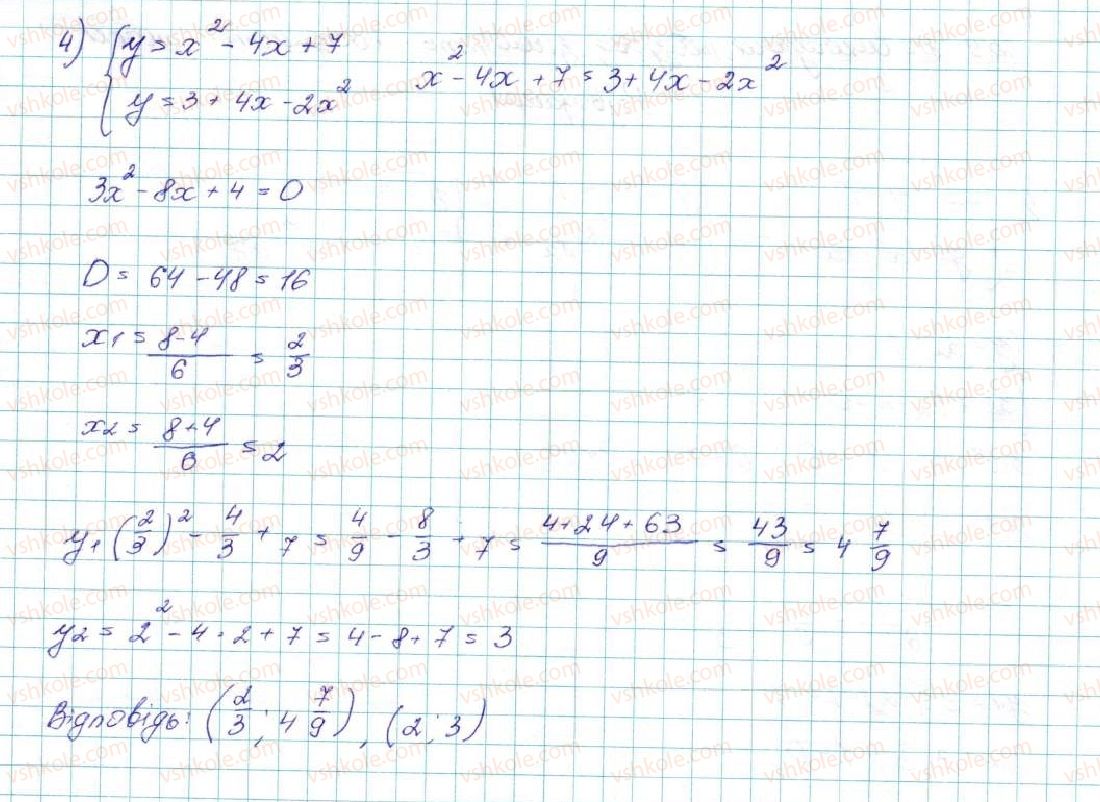 4) { y = x² - 4x + 7
y = 3 + 4x - 2x²
x² - 4x + 7 = 3 + 4x - 2x²
3x² - 8x + 4 = 0
D = 64 - 48 = 16
x₁ = (8-4)/6 = 2/3
x₂ = (8+4)/6 = 2
y₁ (2/3)² - 4/3 + 7 = 4/9 - 8/3 + 7 = (4+24+63)/9 = 43/9 = 4 7/9
y₂ = 2² - 4 · 2 + 7 = 4 - 8 + 7 = 3
Відповідь: (2/3; 4 7/9), (2; 3)